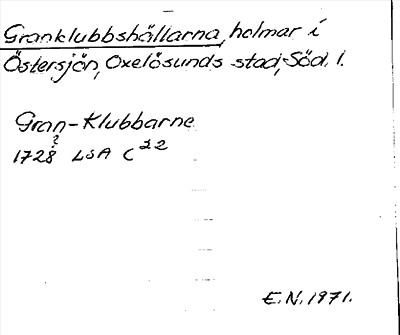 Granklubbshällarna, holmar i
Östersjön, Oxelösunds stad, Söd. l.
Gran-Klubbarne
?
1728 LSA C 22
E.N. 1971.